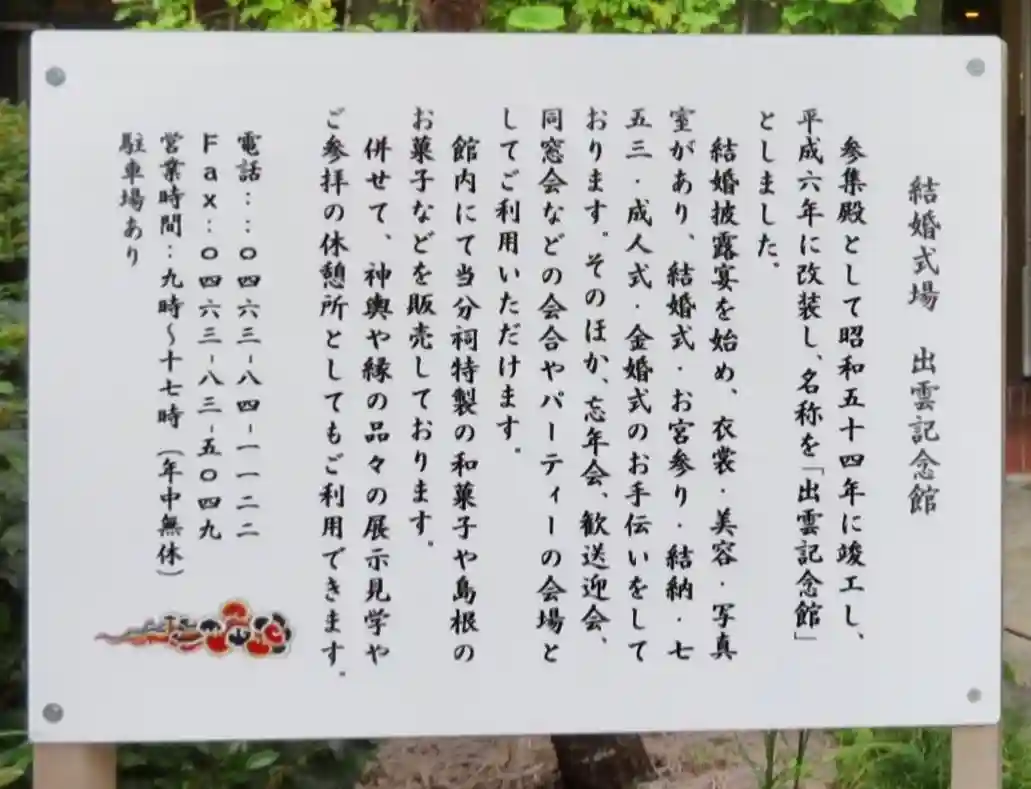 結婚式場　出雲記念館
参集殿として昭和五十四年に竣工し、
平成六年に改装し、名称を「出雲記念館」
としました。
結婚披露宴を始め、衣裳・美容・写真
室があり、結婚式・お宮参り・結納・七
五三・成人式・金婚式のお手伝いをして
おります。そのほか、忘年会、歓送迎会、
同窓会などの会合やパーティーの会場と
してご利用いただけます。
館内にて当分祠特製の和菓子や島根の
お菓子などを販売しております。
併せて、神輿や縁の品々の展示見学や
ご参拝の休憩所としてもご利用できます。
電話：：０四六三-八四-一一二二
Ｆａｘ：０四六三-八三-五０四九
営業時間：九時～十七時（年中無休）
駐車場あり